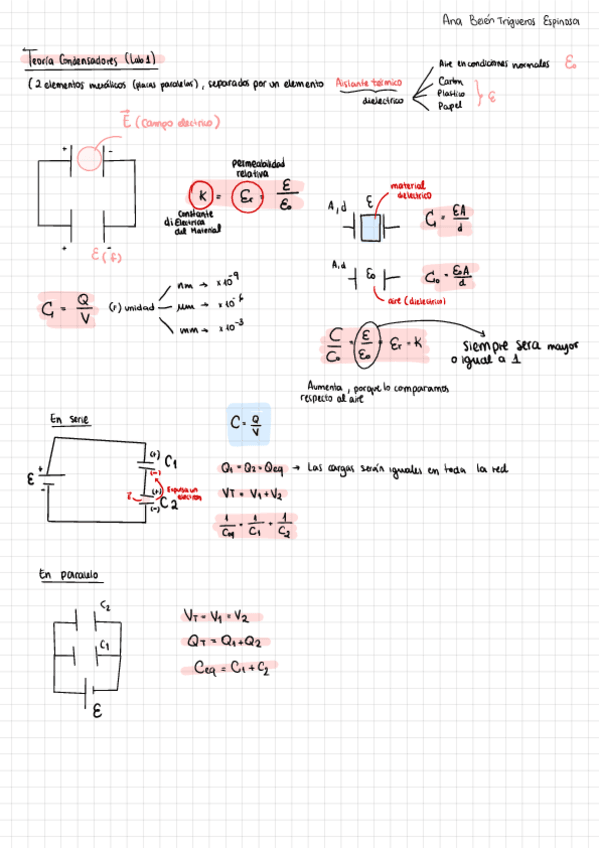 Ana Belén Trigueros Espinosa
Teoría Condensadores (Lab 1)
(2 elementos metálicos (placas paralelas), separados por un elemento Aislante térmico
dieléctrico
Aire en condiciones normales ε₀
Carton
Plastico
Papel
ε
E⃗ (campo electrico)
+ -
+ -
ε (f)
permeabilidad
relativa
K = εr = ε/ε₀
constante
diElectrica
del Material
material
dielectrico
A, d ε
C = εA/d
A, d ε₀
C₀ = ε₀A/d
aire (dielectrico)
C = Q/V
(F) unidad
nm → x10⁻⁹
μm → x10⁻⁶
mm → x10⁻³
C/C₀ = ε/ε₀ = εr = K
siempre sera mayor
o igual a 1
Aumenta, porque lo comparamos
respecto al aire
En serie
C = Q/V
ε + -
(+) C1
(-)
Expulsa un
electron
(+) C2
(-)
Q1 = Q2 = Qeq → Las cargas serán iguales en toda la red
VT = V1 + V2
1/Ceq = 1/C1 + 1/C2
En paralelo
C2
C1
ε
VT = V1 = V2
QT = Q1 + Q2
Ceq = C1 + C2